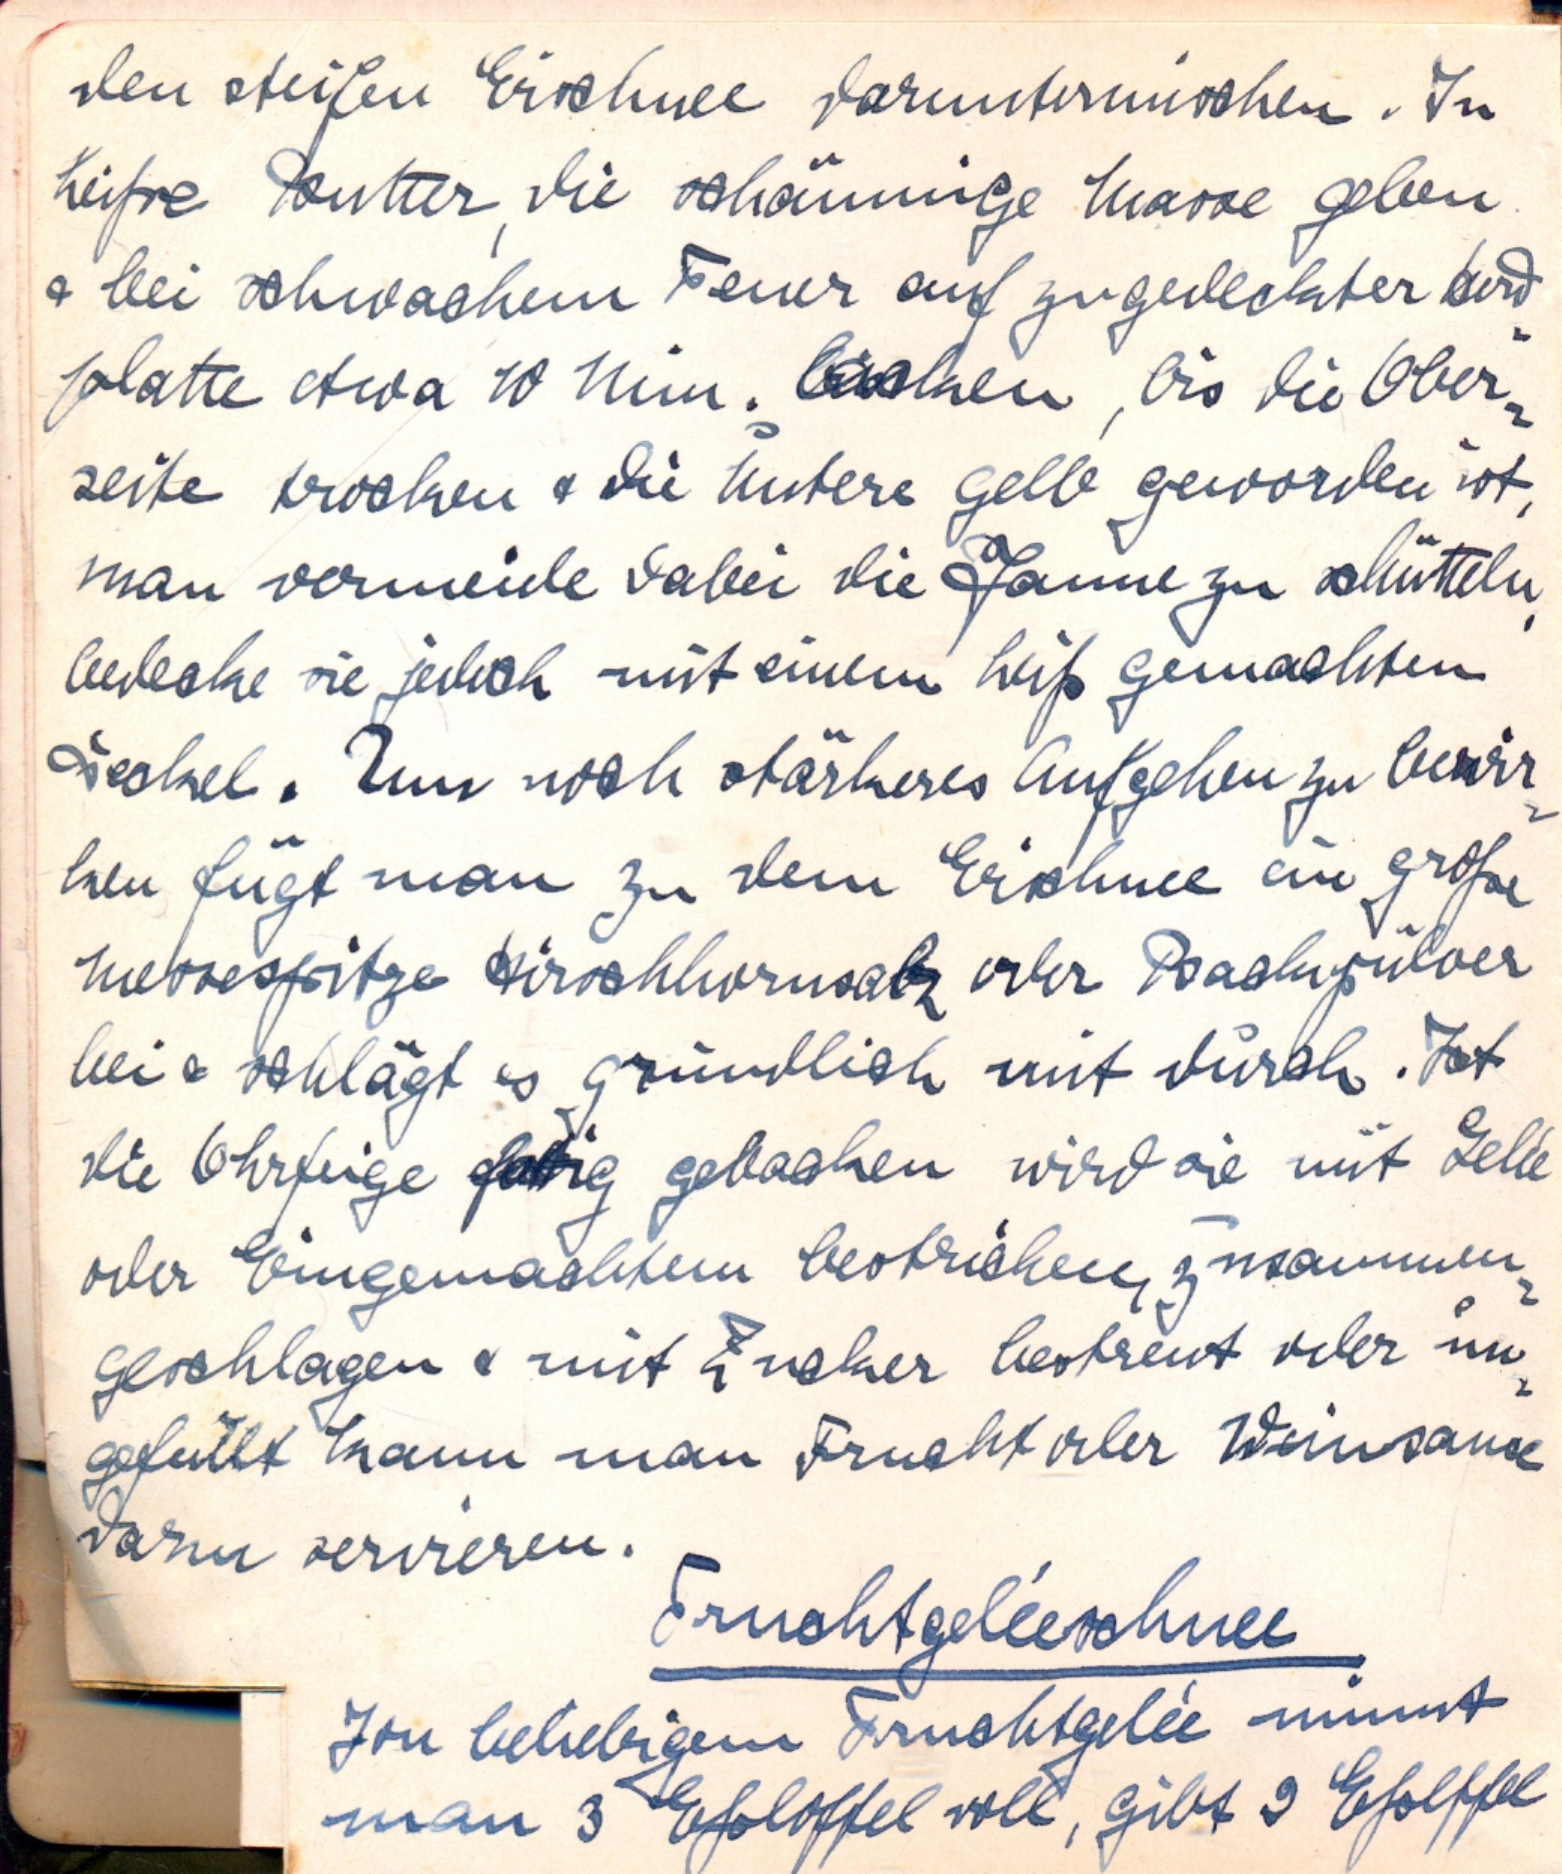 den steifen Eischnee daruntermischen. In
heiße Butter, die schäumige Masse geben
& bei schwachem Feuer auf zugedeckter Herd=
platte etwa 10 Min. backen, bis die Ober=
seite trocken & die Untere gelb geworden ist,
man vermeide dabei die Pfanne zu schütteln,
bedecke sie jedoch mit einem heiß gemachten
Deckel. Um noch stärkeres Aufgehen zu bewir=
ken fügt man zu dem Eischnee eine große
Messespitze Hirschhornsalz oder Backpulver
bei & schlägt es gründlich mit durch. Ist
die Ohrfeige fertig gebacken wird sie mit Gelée
oder Eingemachtem bestrichen, zusammen=
geschlagen & mit Zucker bestreut oder un=
gefüllt kann man Frucht oder Weinsauce
dazu servieren.
Fruchtgeléeschnee
Von beliebigem Fruchtgelée nimmt
man 3 Eßloffel voll, gibt 2 Eßlöffel